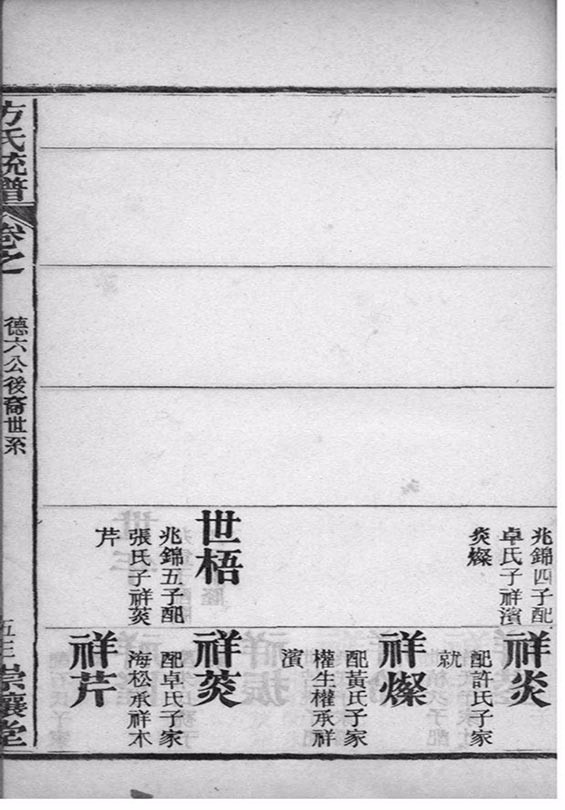 兆錦四子配
卓氏子祥濱
炎燦
世梧
兆錦五子配
張氏子祥菼
芹
祥炎
配許氏子家
就
祥燦
配黃氏子家
權生權承祥
濱
祥菼
配卓氏子家
海松承祥木
祥芹
方氏統譜
卷之
德六公後裔世系
崇讓堂